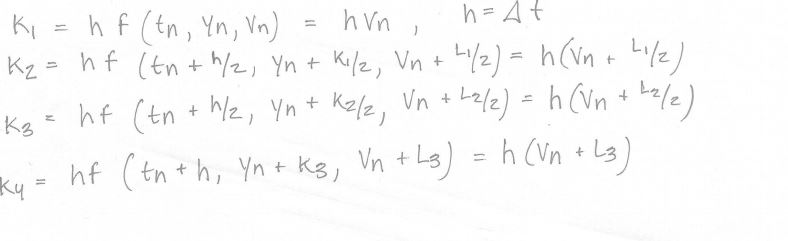 K1 = h f (tn, Yn, Vn) = h Vn , h = Δt
K2 = h f (tn + h/2, Yn + K1/2, Vn + L1/2) = h(Vn + L1/2)
K3 = hf (tn + h/2, Yn + K2/2, Vn + L2/2) = h(Vn + L2/2)
K4 = hf (tn + h, Yn + K3, Vn + L3) = h (Vn + L3)